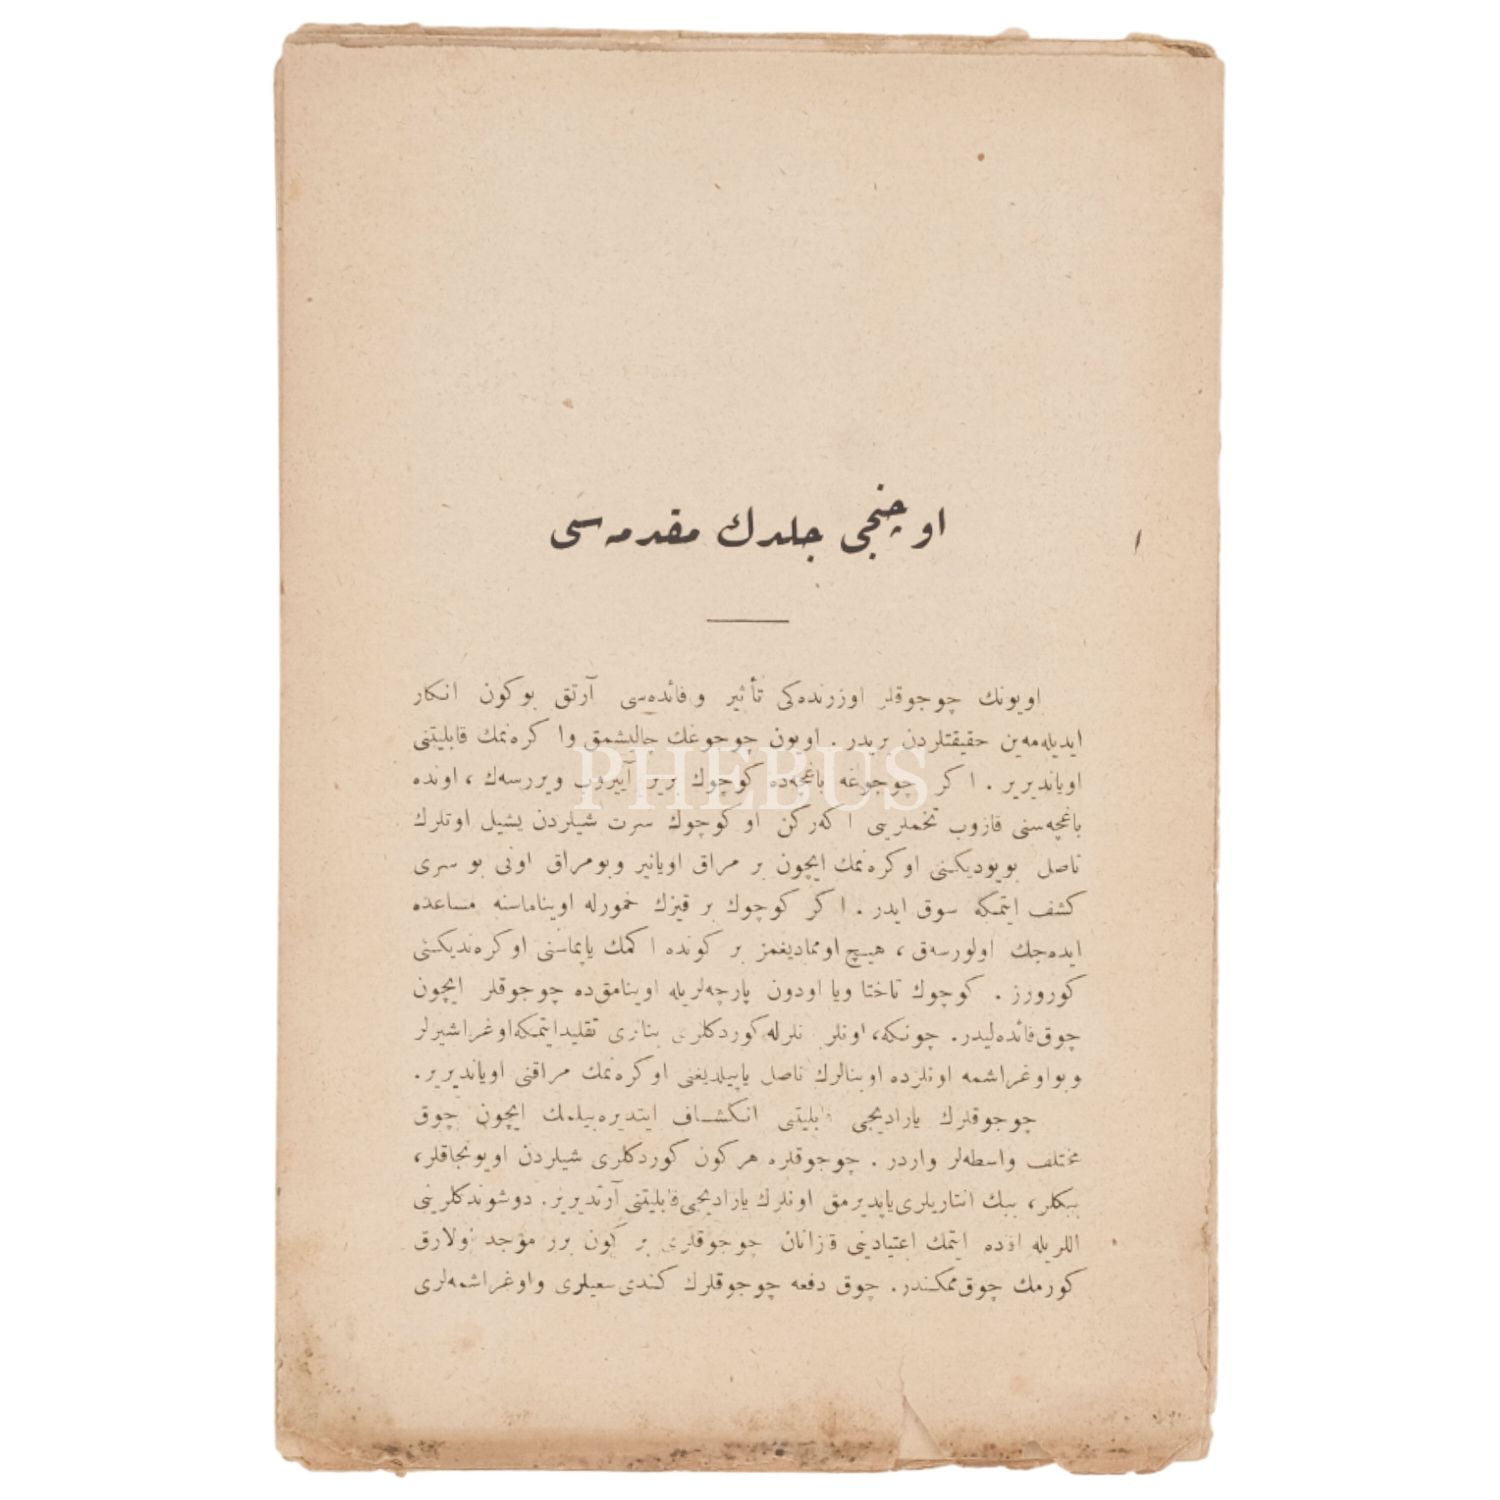 اوچنجی جلدك مقدمه‌سی
اویونك چوجوقلر اوزرنده‌كی تأثیر و فائده‌سی آرتق بوكون انكار
ایدیله‌مه‌ین حقیقتلردن بریدر . اویون چوجوغك چالیشمق وا كره‌نمك قابلیتنی
اویاندیریر . ا كر چوجوغه باغچه‌ده كوچوك بریر آییروب ویررسه‌ك ، اونده
باغچه‌سنی قازوب تخملرینی ا كه‌ركن او كوچوك سرت شیلردن یشیل اوتلرك
ناصل بویودیكنی اوكره‌نمك ایچون بر مراق اویانیر وبومراق اونی بو سری
كشف ایتمكه سوق ایدر . ا كر كوچوك بر قیزك خمورله اویناماسنه مساعده
ایده‌جك اولورسه‌ق ، هیچ اومادیغمز بر كونده ا كمك یاپماسنی اوكره‌ندیكنی
كورورز . كوچوك تاختا ویا اودون پارچه‌لریله اوینامق‌ده چوجوقلر ایچون
چوق فائده‌لیدر. چونكه، اونلر نلرله كوردكلری بنالری تقلیدایتمكه اوغراشیرلر
وبواوغراشمه اونلرده اوبنالرك ناصل یاپیلدیغنی اوكره‌نمك مراقنی اویاندیریر.
چوجوقلرك یارادیجی قابلیتنی انكشاف ایتدیره‌بیلمك ایچون چوق
مختلف واسطه‌لر واردر . چوجوقلره هركون كوردكلری شیلردن اویونجاقلر،
ببكلر، ببك انتاریلری یاپدیرمق اونلرك یارادیجی قابلیتنی آرتدیریر. دوشوندكلرینی
اللریله افاده ایتمك اعتیادینی قزانان چوجوقلری بر كون برر موجد اولارق
كورمك چوق ممكندر. چوق دفعه چوجوقلرك كندی سعیلری واوغراشمه‌لری
PHEBUS